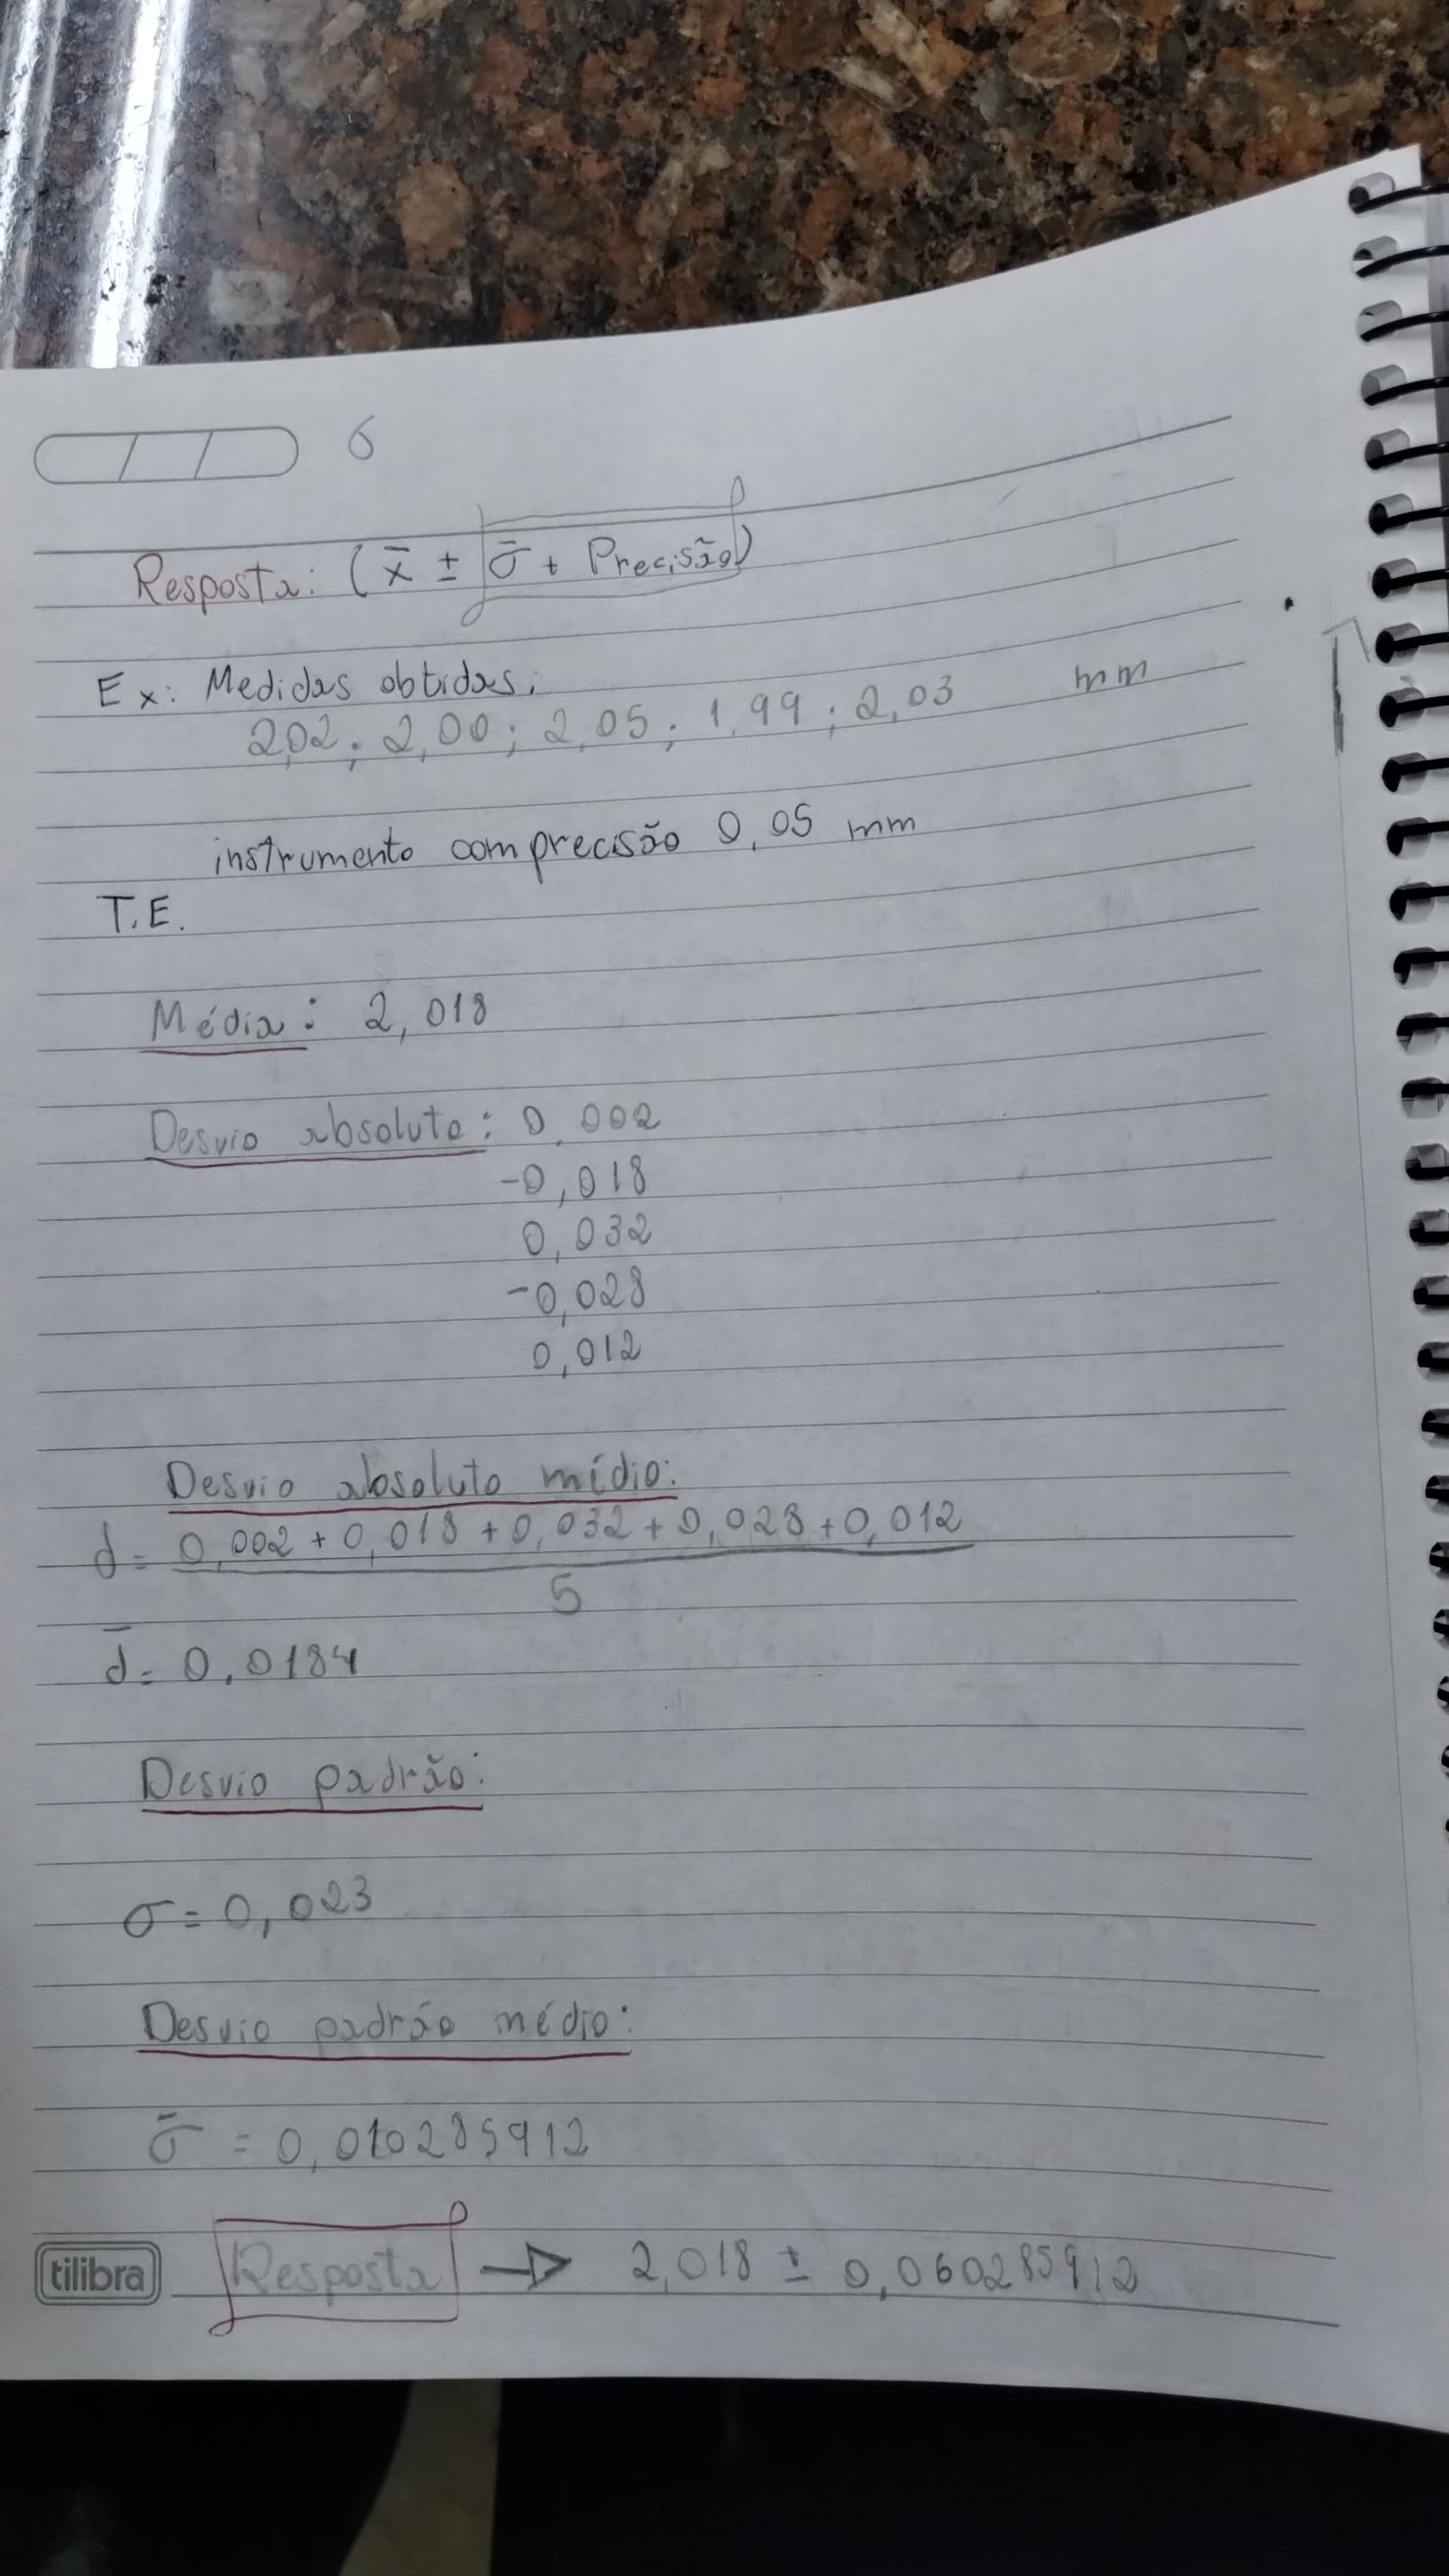 6
Resposta: (x̄ ± σ̄ + Precisão)
Ex: Medidas obtidas:
2,02 ; 2,00 ; 2,05 ; 1,99 ; 2,03 mm
instrumento com precisão 0,05 mm
T.E.
Média: 2,018
Desvio absoluto: 0,002
-0,018
0,032
-0,028
0,012
Desvio absoluto médio:
d = 0,002 + 0,018 + 0,032 + 0,028 + 0,012
5
d̄ = 0,0184
Desvio padrão:
σ = 0,023
Desvio padrão médio:
σ̄ = 0,010285912
tilibra Resposta → 2,018 ± 0,060285912